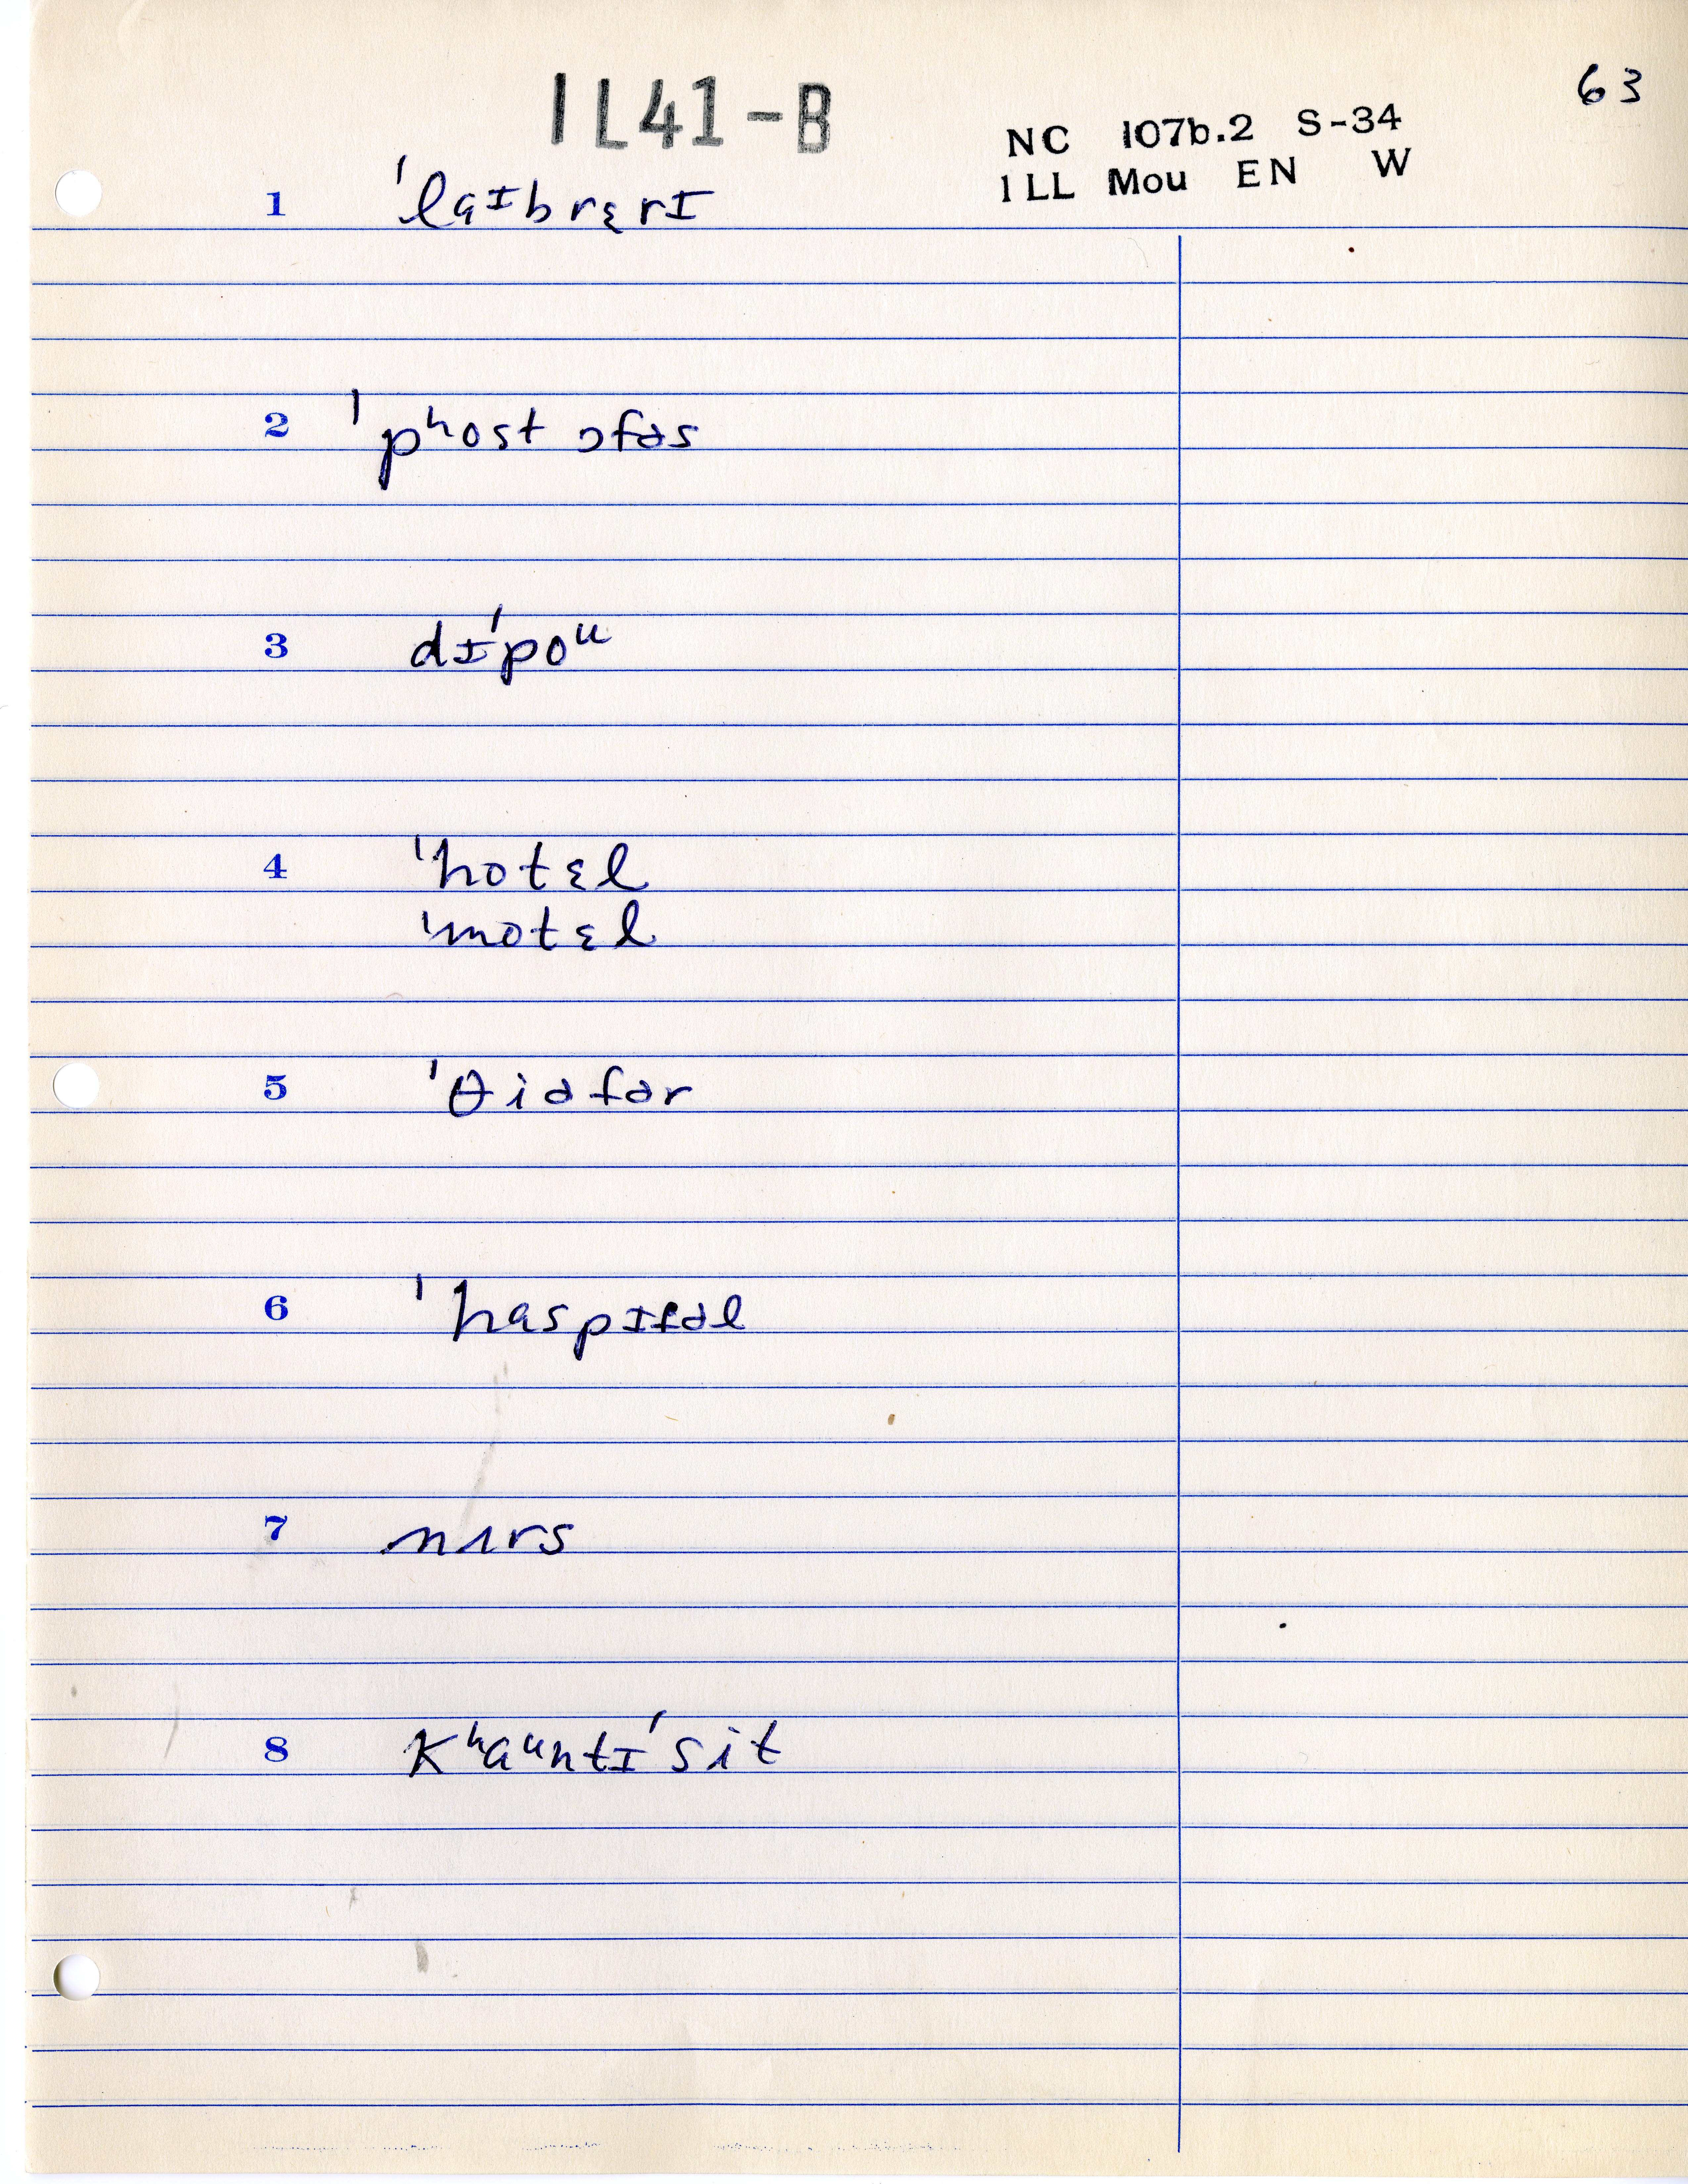 63
IL41-B
NC 107b.2 S-34
ILL Mou EN W
1 ˈlaɪbrɛrɪ
2 ˈpʰost ɔfəs
3 dɪˈpoᵘ
4 ˈhotɛl
ˈmotɛl
5 ˈθiəfər
6 ˈhaspɪtəl
7 nɜrs
8 kʰaᵘntɪˈsit